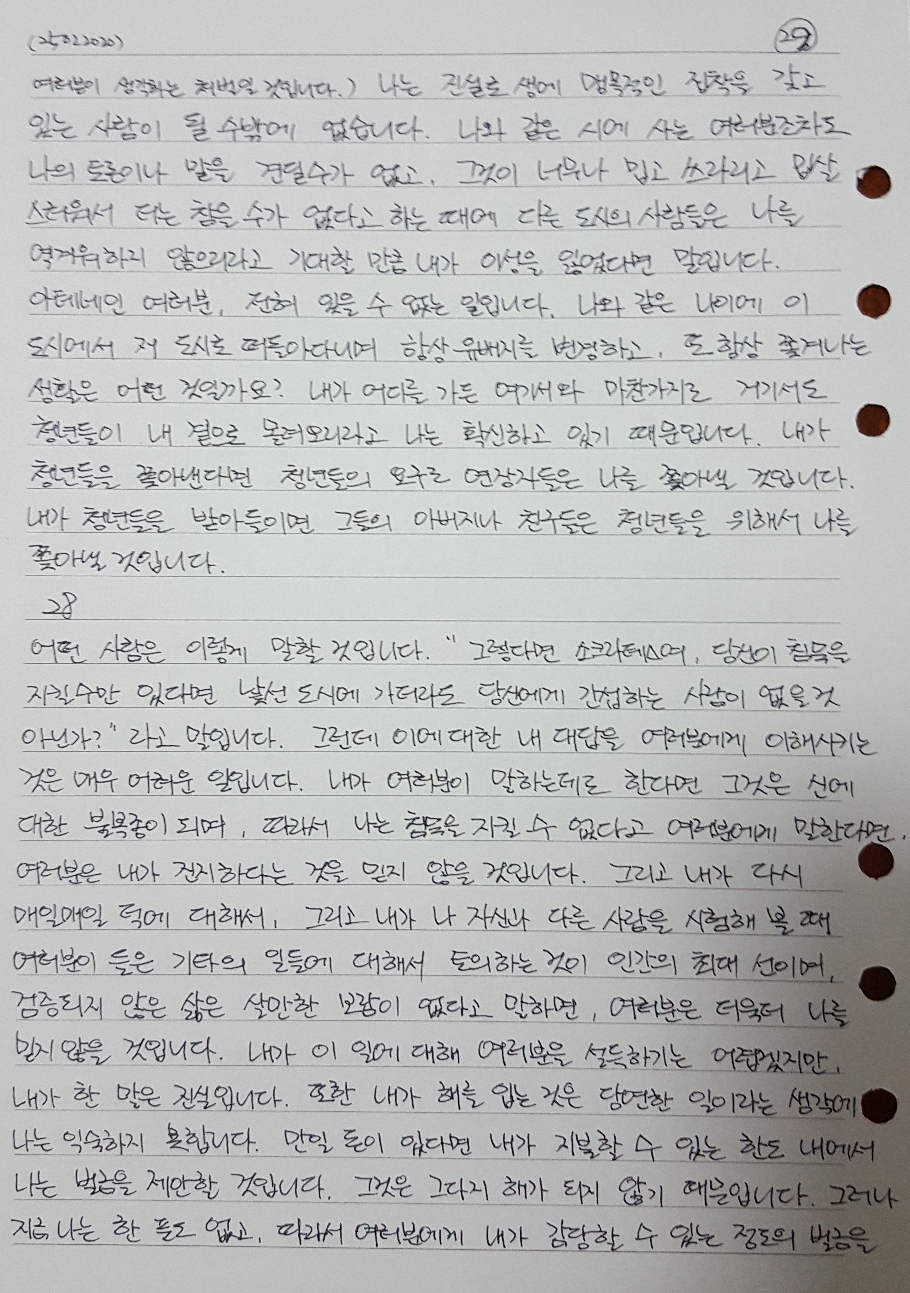 (25022020)
29
여러분이 생각하는 처벌일 것입니다.) 나는 진실로 생에 맹목적인 집착을 갖고
있는 사람이 될 수밖에 없습니다. 나와 같은 시에 사는 여러분조차도
나의 토론이나 말을 견딜수가 없고, 그것이 너무나 밉고 쓰라리고 밉살
스러워서 더는 참을 수가 없다고 하는 때에 다른 도시의 사람들은 나를
역겨워하지 않으리라고 기대할 만큼 내가 이성을 잃었다면 말입니다.
아테네인 여러분, 전혀 있을 수 없는 일입니다. 나와 같은 나이에 이
도시에서 저 도시로 떠돌아다니며 항상 유배지를 변경하고, 또 항상 쫓겨나는
생활은 어떤 것일까요? 내가 어디를 가든 여기서와 마찬가지로 거기서도
청년들이 내 곁으로 몰려오리라고 나는 확신하고 있기 때문입니다. 내가
청년들을 쫓아낸다면 청년들의 요구로 연장자들은 나를 쫓아낼 것입니다.
내가 청년들을 받아들이면 그들의 아버지나 친구들은 청년들을 위해서 나를
쫓아낼 것입니다.
28
어떤 사람은 이렇게 말할 것입니다. "그렇다면 소크라테스여, 당신이 침묵을
지킬수만 있다면 낯선 도시에 가더라도 당신에게 간섭하는 사람이 없을것
아닌가?" 라고 말입니다. 그런데 이에 대한 내 대답을 여러분에게 이해시키는
것은 매우 어려운 일입니다. 내가 여러분이 말하는데로 한다면 그것은 신에
대한 불복종이 되며, 따라서 나는 침묵을 지킬 수 없다고 여러분에게 말한다면,
여러분은 내가 진지하다는 것을 믿지 않을 것입니다. 그리고 내가 다시
매일매일 덕에 대해서, 그리고 내가 나 자신과 다른 사람을 시험해 볼 때
여러분이 들은 기타의 일들에 대해서 토의하는 것이 인간의 최대 선이며,
검증되지 않은 삶은 살만한 보람이 없다고 말하면, 여러분은 더욱더 나를
믿지 않을 것입니다. 내가 이 일에 대해 여러분을 설득하기는 어렵겠지만,
내가 한 말은 진실입니다. 또한 내가 해를 입는 것은 당연한 일이라는 생각에
나는 익숙하지 못합니다. 만일 돈이 있다면 내가 지불할 수 있는 한도 내에서
나는 벌금을 제안할 것입니다. 그것은 그다지 해가 되지 않기 때문입니다. 그러나
지금 나는 한 푼도 없고, 따라서 여러분에게 내가 감당할 수 있는 정도의 벌금을